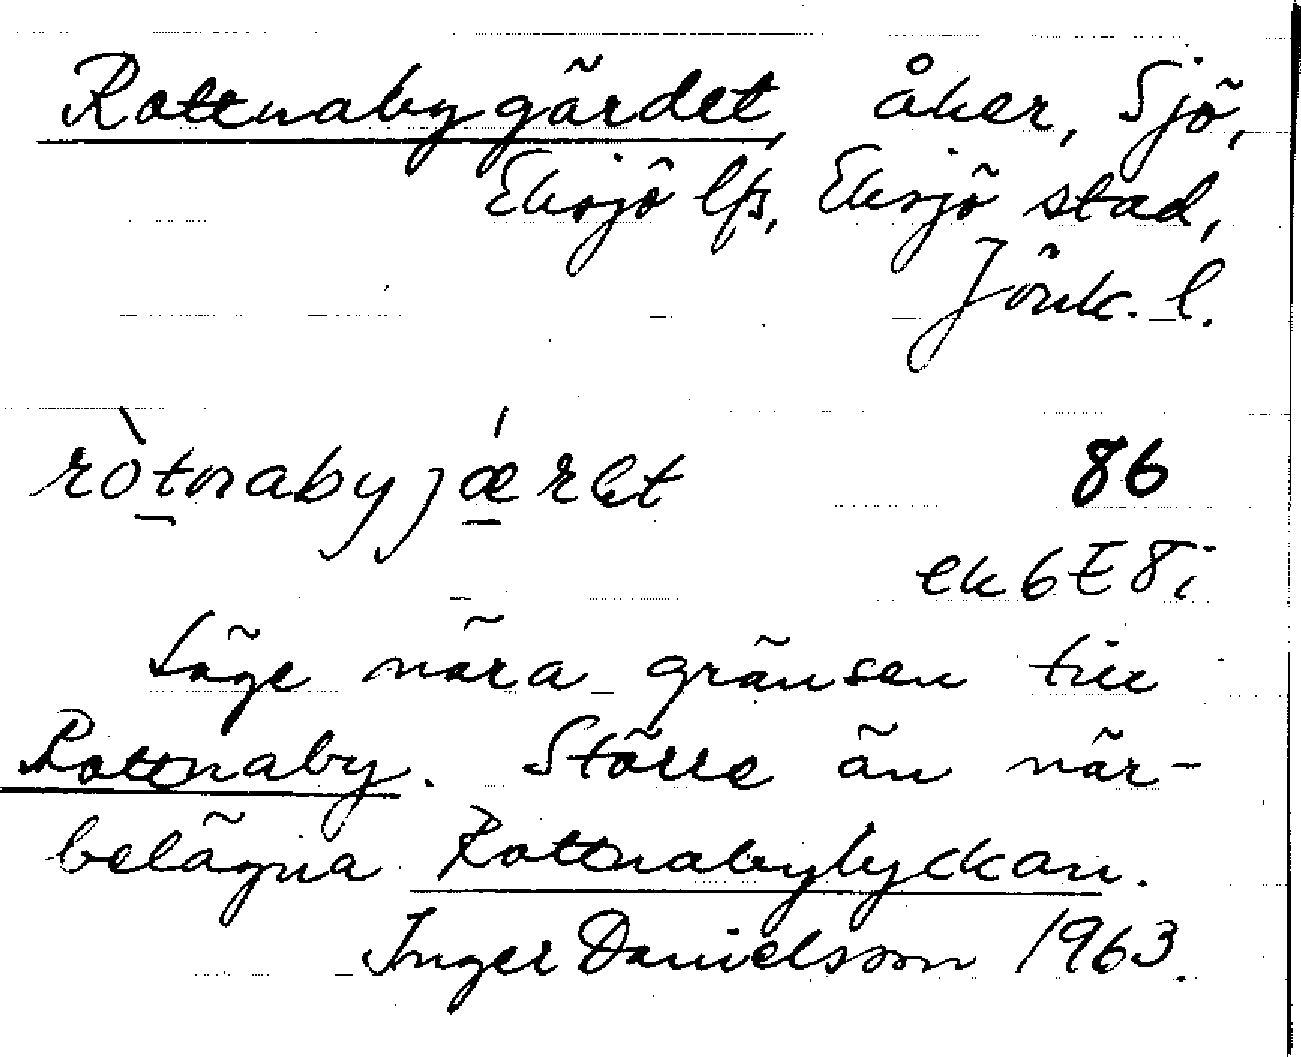 Rottnabygärdet, åker, Sjö,
Eksjö lfs, Eksjö stad,
Jönk. l.
ròtnabyjǽret 86
ek 6 E 8 i
Läge nära gränsen till
Rottnaby. Större än när-
belägna Rottnabylyckan.
Inger Danielsson 1963.